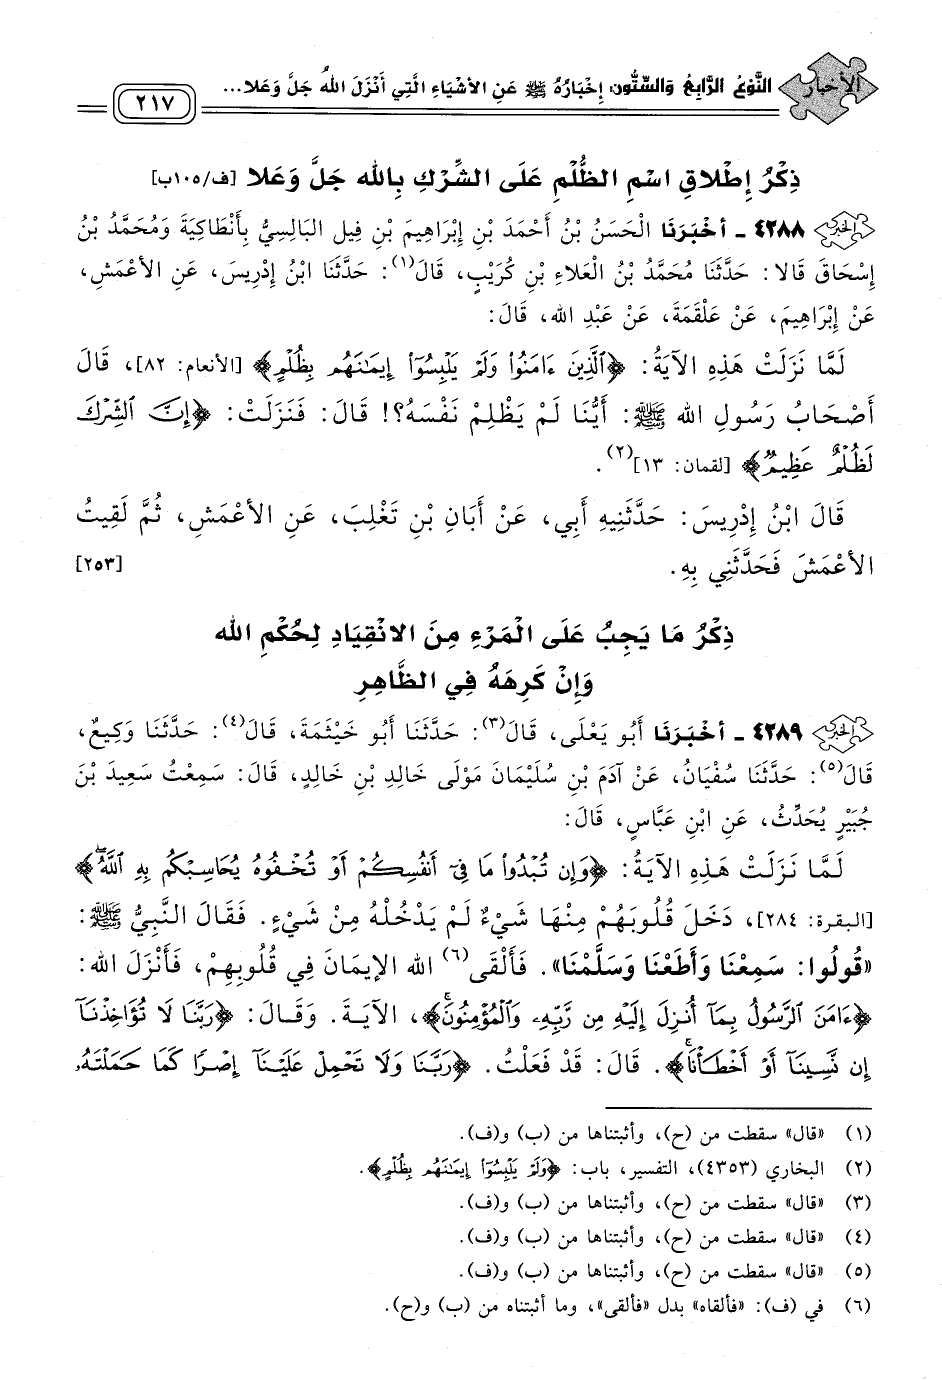 الأخبار النَّوْعُ الرَّابِعُ وَالسِّتُّونَ: إِخْبَارُهُ ﷺ عَنِ الأَشْيَاءِ الَّتِي أَنْزَلَ اللهُ جَلَّ وَعَلا... ٢١٧
ذِكْرُ إِطْلاقِ اسْمِ الظُّلْمِ عَلَى الشِّرْكِ بِالله جَلَّ وَعَلا [ف/١٠٥ب]
٤٢٨٨ ـ أَخْبَرَنَا الْحَسَنُ بْنُ أَحْمَدَ بْنِ إِبْرَاهِيمَ بْنِ فِيلِ البَالِسِيُّ بِأَنْطَاكِيَةَ وَمُحَمَّدُ بْنُ
إِسْحَاقَ قَالا: حَدَّثَنَا مُحَمَّدُ بْنُ الْعَلاءِ بْنِ كُرَيْبٍ، قَالَ(١): حَدَّثَنَا ابْنُ إِدْرِيسَ، عَنِ الأَعْمَشِ،
عَنْ إِبْرَاهِيمَ، عَنْ عَلْقَمَةَ، عَنْ عَبْدِ الله، قَالَ:
لَمَّا نَزَلَتْ هَذِهِ الآيَةُ: ﴿ٱلَّذِينَ ءَامَنُوا۟ وَلَمْ يَلْبِسُوٓا۟ إِيمَـٰنَهُم بِظُلْمٍ﴾ [الأنعام: ٨٢]، قَالَ
أَصْحَابُ رَسُولِ الله ﷺ: أَيُّنَا لَمْ يَظْلِمْ نَفْسَهُ؟! قَالَ: فَنَزَلَتْ: ﴿إِنَّ ٱلشِّرْكَ
لَظُلْمٌ عَظِيمٌ﴾ [لقمان: ١٣](٢).
قَالَ ابْنُ إِدْرِيسَ: حَدَّثَنِيهِ أَبِي، عَنْ أَبَانِ بْنِ تَغْلِبَ، عَنِ الأَعْمَشِ، ثُمَّ لَقِيتُ
الأَعْمَشَ فَحَدَّثَنِي بِهِ. [٢٥٣]
ذِكْرُ مَا يَجِبُ عَلَى الْمَرْءِ مِنَ الانْقِيَادِ لِحُكْمِ الله
وَإِنْ كَرِهَهُ فِي الظَّاهِرِ
٤٢٨٩ ـ أَخْبَرَنَا أَبُو يَعْلَى، قَالَ(٣): حَدَّثَنَا أَبُو خَيْثَمَةَ، قَالَ(٤): حَدَّثَنَا وَكِيعٌ،
قَالَ(٥): حَدَّثَنَا سُفْيَانُ، عَنْ آدَمَ بْنِ سُلَيْمَانَ مَوْلَى خَالِدِ بْنِ خَالِدٍ، قَالَ: سَمِعْتُ سَعِيدَ بْنَ
جُبَيْرٍ يُحَدِّثُ، عَنِ ابْنِ عَبَّاسٍ، قَالَ:
لَمَّا نَزَلَتْ هَذِهِ الآيَةُ: ﴿وَإِن تُبْدُوا۟ مَا فِىٓ أَنفُسِكُمْ أَوْ تُخْفُوهُ يُحَاسِبْكُم بِهِ ٱللَّهُ﴾
[البقرة: ٢٨٤]، دَخَلَ قُلُوبَهُمْ مِنْهَا شَيْءٌ لَمْ يَدْخُلْهُ مِنْ شَيْءٍ. فَقَالَ النَّبِيُّ ﷺ:
«قُولُوا: سَمِعْنَا وَأَطَعْنَا وَسَلَّمْنَا». فَأَلْقَى(٦) الله الإِيمَانَ فِي قُلُوبِهِمْ، فَأَنْزَلَ الله:
﴿ءَامَنَ ٱلرَّسُولُ بِمَآ أُنزِلَ إِلَيْهِ مِن رَّبِّهِۦ وَٱلْمُؤْمِنُونَ﴾، الآيَةَ. وَقَالَ: ﴿رَبَّنَا لَا تُؤَاخِذْنَآ
إِن نَّسِينَآ أَوْ أَخْطَأْنَا﴾. قَالَ: قَدْ فَعَلْتُ. ﴿رَبَّنَا وَلَا تَحْمِلْ عَلَيْنَآ إِصْرًا كَمَا حَمَلْتَهُۥ
(١) «قال» سقطت من (ح)، وأثبتناها من (ب) و(ف).
(٢) البخاري (٤٣٥٣)، التفسير، باب: ﴿وَلَمْ يَلْبِسُوٓا۟ إِيمَـٰنَهُم بِظُلْمٍ﴾.
(٣) «قال» سقطت من (ح)، وأثبتناها من (ب) و(ف).
(٤) «قال» سقطت من (ح)، وأثبتناها من (ب) و(ف).
(٥) «قال» سقطت من (ح)، وأثبتناها من (ب) و(ف).
(٦) في (ف): «فألقاه» بدل «فألقى»، وما أثبتناه من (ب) و(ح).